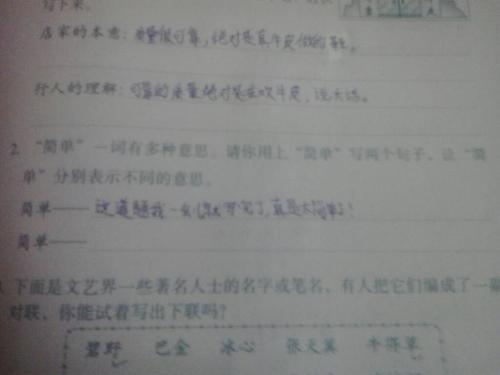 写下来。
店家的本意：质量很可靠，绝对是真牛皮做的鞋。
行人的理解：可靠的质量绝对是在吹牛皮，说大话。
2. “简单”一词有多种意思。请你用上“简单”写两个句子，让“简
单”分别表示不同的意思。
简单—— 这道题我一会儿就写完了，真是太简单了！
简单——
下面是文艺界一些著名人士的名字或笔名，有人把它们编成了一副
对联，你能试着写出下联吗？
碧野 巴金 冰心 张天翼 牛得草